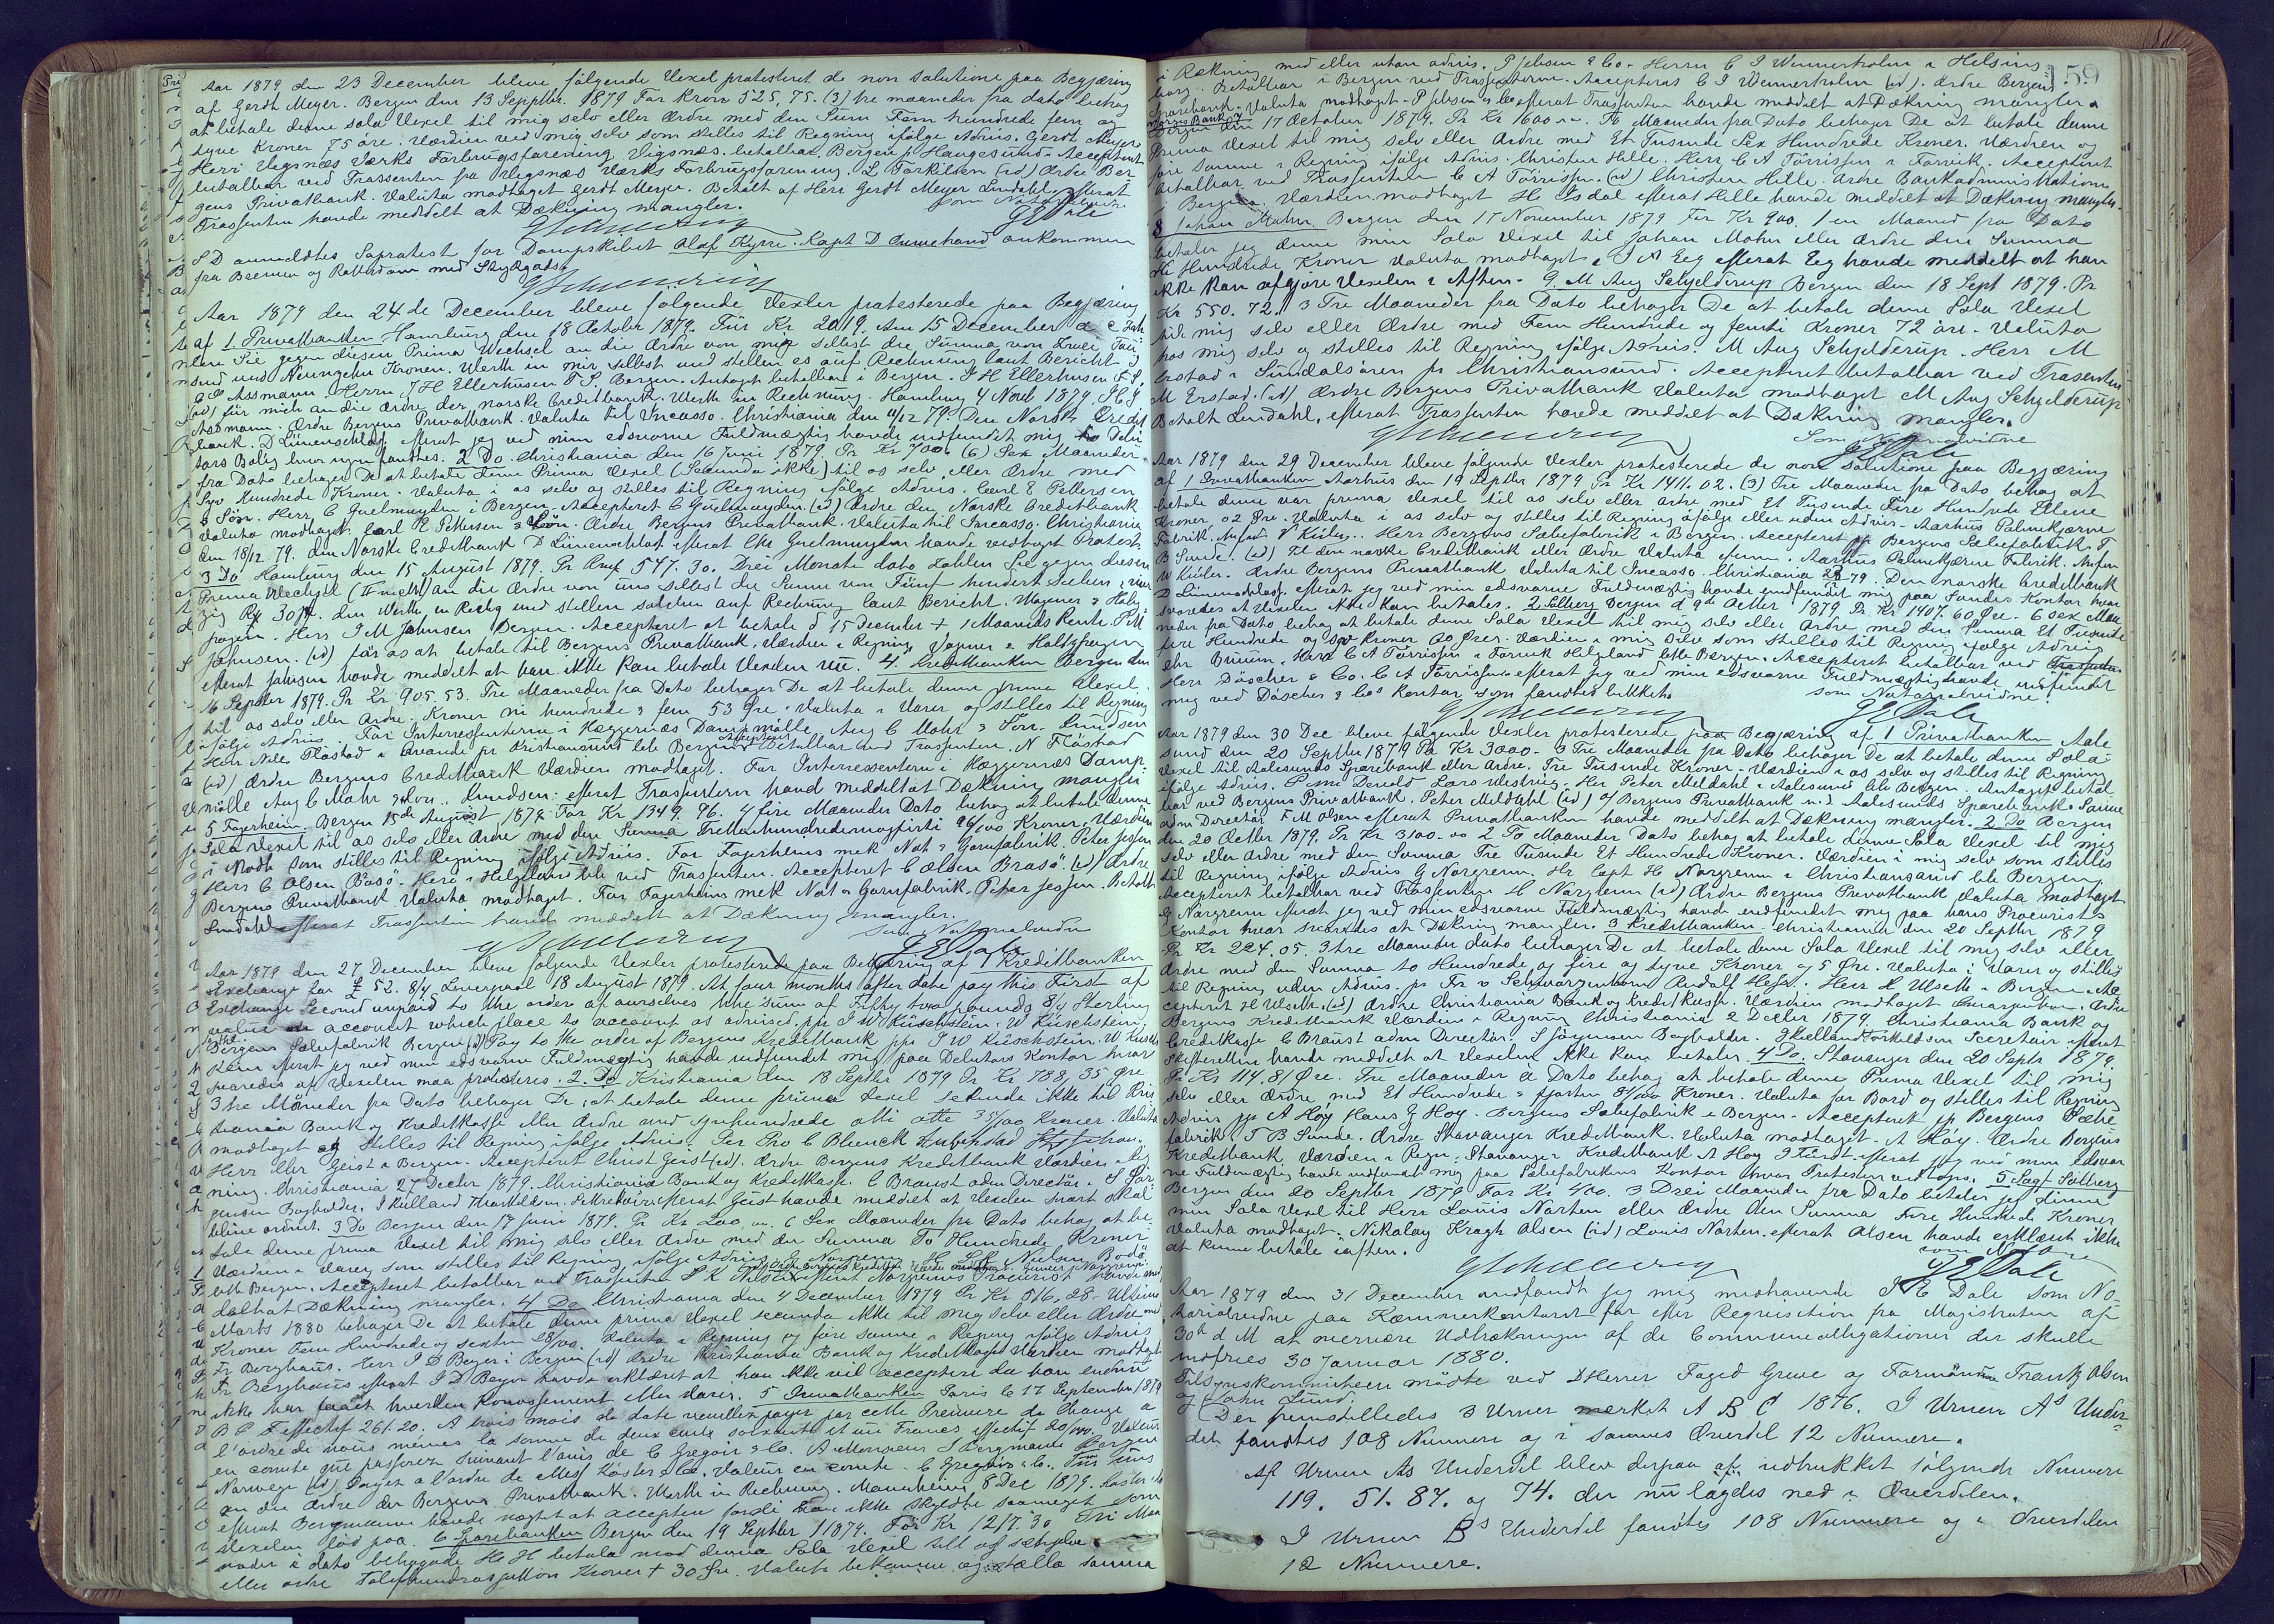 Aar 1879 den 23 December bleve følgende Vexel protesteret de non solutione paa Begjæring
af Gerdt Meyer. Bergen den 13 Septbr. 1879 For Kron 525,75. (3) tre maaneder fra dato behag
at betale denne sola Vexel til mig selv eller Ordre med den Sum Fem hundrede fem og
tyve Kroner 75 öre. Værdien ved mig selv som stilles til Regning ifølge Advis. Gerdt Meyer
Herr Vigsnæs Værks Forbrugsforening Vigsnæs. betalbar. Bergen p Haugesund. Acceptert
betalbar ved Trassenten for Vigsnæs Værks Forbrugsforening. L Torkilsen (ed) Ordre Ber
gens Privatbank. Valuta modtaget Gerdt Meyer. Betalt af Herr Gerdt Meyer Lindahl, efterat
Trassenten havde meddelt at Dækning mangler. som Notarialvidne
G Schmering G E Dale
S D anmeldtes Søprotest for Dampskibet Olaf Kyrre. Kapt D ankommen
fra Bremen og Rotterdam med Stykgods.
G Schmering
Aar 1879 den 24de December bleve følgende Vexler protesterede paa Begjæring
af 1 Privatbanken Hamburg den 18 October 1879. Für Kr 2019. Am 15 December a c Zah
len Sie gegen diesen Prima Wechsel an die Ordre von mir selbst die Summa von Zwei Tau
send und Neunzehn Kronen. Werth in mir selbst und stellen es auf Rechnung laut Bericht
Assmann Herrn J H Ellerhusen F S. Bergen. Antaget betalbar i Bergen. J H Ellerhusen F S.
(ed) für mich an die Ordre der norske Creditbank. Werth in Rechnung. Hamburg 4 Novb 1879.
Assmann. Ordre Bergens Privatbank. Valuta til Incasso. Christiania den 11/12 79. Den Norske Credit
bank. D Lünenschloss. efterat jeg ved min edsvorne Fuldmægtig havde indfundet mig hos Debi
tors Bolig hvor ingen fandtes. 2 Do. Christiania den 16 Juni 1879. Pr Kr 700. (6) Sex Maaneder
fra Dato behager De at betale denne Prima Vexel (Secunda ikke) til os selv eller Ordre med
Syv Hundrede Kroner. Valuta i os selv og stilles til Regning ifølge Advis. Carl E Pettersen
& Søn. Herr C Guelmuyden i Bergen. Accepteret C Guelmuyden. (ed) Ordre den Norske Creditbank
Valuta modtaget. Carl E Pettersen & Søn. Ordre Bergens Privatbank. Valuta til Incasso. Christiania
den 18/12 79. den Norske Creditbank D Lünenschloss efterat Chr Guelmuyden havde vedtaget Protest.
3 Do Hamburg den 15 August 1879. Pr Rmk 547. 30. Drei Monate dato zahlen Sie gegen diesen
Prima Wechsel (II nicht) an die Ordre von uns selbst die Summe von Fünf hundert Sieben, vier
zig 30 den Werth in Rechg und stellen solchen auf Rechnung laut Bericht. Wagener & Halp
hagen. Herr J M Johnsen Bergen. Accepteret at betale d 15 December + 1 Maaneds Rente J M
Johnsen. (ed) for os at betale til Bergens Privatbank. Værdien i Regning
efterat Johnsen havde meddelt at han ikke kan betale Vexelen nu. 4. Kreditbanken Bergen den
16 Septber 1879. Pr Kr 905.53. Tre Maaneder fra Dato behager De at betale denne prima Vexel
til os selv eller Ordre. Kroner ni hundrede & fem 53 Øre. Valuta i Varer og stilles til Regning
ifølge Advis. For Interessenterne i Hæggernæs Dampmølle. Aug C Mohr & Søn. Knudsen
Herr Nils Flöstad i Qvande pr Kristiansund bb Bergen Accepteret Betalbar ved Trassenten. N Flöstad
(ed) Ordre Bergens Creditbank Værdien modtaget. For Interessenterne i Hæggernæs Damp
mölle Aug C Mohr & Søn. Knudsen: efterat Trassenterne havd meddelt at Dækning mangler
5 Fagerheim. Bergen 15de August 1879. For Kr 1349. 96. 4 fire Maaneder Dato behag at betale denne
Sola Vexel til os selv eller Ordre med den Summa Trettenhundredenogfirti 96/100 Kroner, Værdien
i Modt. som stilles til Regning ifølge Advis. For Fagerheims mek Not & Garnfabrik. Peter Jessen
Herr C Olsen Brasö. Herö i Helgeland bb ved Trassenten. Accepteret C Olsen Brasö. (ed) Ordre
Bergens Privatbank Valuta modtaget. For Fagerheims mek Not & Garnfabrik. Peter Jessen. Betalt
Lindahl efterat Trassenten havde meddelt at Dækning mangler.
Som Notarialvidne
G Schmering G E Dale
Aar 1879 den 27 December bleve følgende Vexler protesterede paa Begjæring af 1 Kreditbanken
Exchange for £ 52. 8/4 Liverpool 18 August 1879. At four months after date pay this First of
Exchange Second unpaid to the order of ourselves the sum of Fifty two pounds 8/4 Sterling
value on account which place to account as advised. pp J W Küschstein. W Küschstein
Bergens Sæbefabrik Bergen (ed) Pay to the order of Bergens Kreditbank pp J W Küschstein. W Küschs
efterat jeg ved min edsvorne Fuldmægtig havde indfundet mig paa Debitors Kontor hvor
svaredes at Vexelen maa protesteres. 2. Do Kristiania den 18 Septbr 1879 Pr Kr 788, 35 Øre
3 tre Måneder fra Dato behager De at betale denne prima Vexel sekunda ikke til Kris
tiania Bank og Kreditkasse eller Ordre med syvhundrede otti otte 35/100 Kroner. Valuta
modtaget og stilles til Regning ifølge Advis. Per Pro C Blenck
Herr Chr Geist i Bergen. Accepteret Christ Geist (ed). Ordre Bergens Kreditbank Værdien i Reg
ning. Christiania 27 Decbr 1879. Christiania Bank og Kreditkasse. C Braust adm Directör. S Jör
gensen Bogholder. J Kielland Thorkildsen. Sekretair efterat Geist havde meddelt at Vexelen snart skal
blive ordnet. 3 Do Bergen den 17 Juni 1879. Pr Kr 200,00. 6 Sex Maaneder fra Dato behag at be
tale denne prima Vexel til mig selv eller Ordre med den Summa To Hundrede Kroner
Værdien i Varer som stilles til Regning ifølge Advis. G Norgrenn Hr S K Nielsen Bodø
bb Bergen. Accepteret betalbar ved Trassenten S K Nielsen efterat Norgrenns Procurist havde med
delt at Dækning mangler. 4 Do Christiania den 4 December 1879 Pr Kr 516,28. Ultimo
Marts 1880 behager De at betale denne prima Vexel secunda ikke til mig selv eller Ordre med
Kroner Fem Hundrede og sexten 28/100. Valuta i Regning og føre samme i Regning ifølge Advis
Fr Borghaus. Herr J D Beyer i Bergen (ed) Ordre Kristiania Bank og Kreditkasse Værdien modtaget
Fr Berghaus efterat J D Beyer havde erklæret at han ikke vil acceptere da han endnu
ikke har faaet hverken Konossement eller Varer. 5 Privatbanken Paris le 17 September 1879
B P F effectif 261.20. A trois mois de date veuillez payer par cette Premiere de Change a
l'ordre de nous mêmes la somme de deux cents soixante et un Francs effectif 20/100. Valeur
en compte que passerez suivant l'avis de C Gregoir & Co. A Monsieur J Bergmann Bergen
Norwege (ed) Payez a l'ordre de Mess Köster & Co. Valeur en compte. C Gregoir & Co. Für uns
an die Ordre der Bergens Privatbank. Werth in Rechnung. Mannheim 8 Dec 1879. Köster & Co
efterat Bergmann havde nægtet at acceptere fordi han ikke skyldte saameget som
Vexelen lød paa. 6 Sparebanken Bergen den 19 Septbr 1879. För Kr 1217.30 Tri Maa
nader a dato behagade H H betala mod denna Sola Vexel till oss sjelfva
eller ordre Tolfhundrasjutton Kronor + 30 Öre. Valuta bekommen og ställa samma
159
i Räkning med eller utan advis. P Jebsen & Co. Herrn C J Wennerholm i Helsing
borg. Betalbar i Bergen ved Trassenterne. Accepteras C J Wennerholm (ed). Ordre Bergens
Sparebank. Valuta modtaget. P Jebsen & Co efterat Trassenten havde meddelt at Dækning mangler.
Norges Bank 7 Bergen den 17 October 1879. Pr Kr 1600.00. To Maaneder fra Dato behager De at betale denne
Prima Vexel til mig selv eller Ordre med Et Tusinde Sex Hundrede Kroner. Værdien og
före samme i Regning ifølge Advis. Christen Hille. Herr C A Törrissen i Forvik. Accepteret
betalbar ved Trassenten C A Törrissen. (ed) Christen Hille. Ordre Bankadministrationen
i Bergen. Værdien modtaget H Isdal efterat Hille havde meddelt at Dækning mangler.
8 Johan Mohn. Bergen den 17 November 1879 For Kr 900. 1 en Maaned fra Dato
betaler jeg denne min Sola Vexel til Johan Mohn eller Ordre den Summa
Ni Hundrede Kroner Valuta modtaget. J N Eeg efterat Eeg havde meddelt at han
ikke kan afgjøre Vexelen i Aften. 9. M Aug Schjelderup Bergen den 18 Sept 1879. Pr
Kr 550. 72. 3 Tre Maaneder fra Dato behager De at betale denne Sola Vexel
til mig selv eller Ordre med Fem Hundrede og femti Kroner 72 öre. Valuta
hos mig selv og stilles til Regning ifølge Advis. M Aug Schjelderup. Herr M
Erstad i Sundalsören pr Christiansund. Accepteret betalbar ved Trasenten
M Erstad. (ed) Ordre Bergens Privatbank Valuta modtaget M Aug Schjelderup
Betalt Lindahl, efterat Trassenten havde meddelt at Dækning mangler.
Som Notarialvidne
G Schmering G E Dale
Aar 1879 den 29 December bleve følgende Vexler protesterede de non solutione paa Begjæring
af 1 Privatbanken Aarhus den 19 Septbr 1879 Pr Kr 1411.02. (3) Tre Maaneder fra Dato behag at
betale denne vor prima Vexel til os selv eller Ordre med Et Tusinde Fire Hundrede Elleve
Kroner 02 Øre. Valuta i os selv og stilles til Regning ifølge eller uden Advis. Aarhus Palmekjærne
Fabrik. V Küler. Herr Bergens Sæbefabrik i Bergen. Accepteret pp Bergens Sæbefabrik. T
B Sunde. (ed) Til den norske Creditbank eller Ordre Valuta Aarhus Palmekjærne Fabrik.
W Küler. Ordre Bergens Privatbank Valuta til Incasso. Christiania 79. Den norske Creditbank
D Lünenschloss, efterat jeg ved min edsvorne Fuldmægtig havde indfundet mig paa Sundes Kontor hvor
svaredes at Vexelen ikke kan betales. 2 Solberg Bergen d 9de Octbr 1879. Pr Kr 1407.60 Øre. 6 sex Maa
neder fra Dato behag at betale denne Sola Vexel til mig selv eller Ordre med den Summa Et Tusinde
fire Hundrede og syv Kroner 60 Ører. Værdien i mig selv som stilles til Regning ifølge Advis
Chr Bruun. Herr C A Törrissen i Forvik Helgeland bb Bergen. Accepteret betalbar ved Trassenten
Herr Döscher & Co. C A Törrissen efterat jeg ved min edsvorne Fuldmægtig havde indfundet
mig ved Döscher & Co's Kontor som fandtes lukket.
som Notarialvidne
G Schmering G E Dale
Aar 1879 den 30 Dec bleve følgende Vexler protesterede paa Begjæring af 1 Privatbanken Aale
sund den 20 Septbr 1879 Pr Kr 3000. 3 Tre Maaneder fra Dato behager De at betale denne Sola
Vexel til Aalesunds Sparebank eller Ordre. Tre Tusinde Kroner. Værdien i os selv og stilles til Regning
ifølge Advis. Lars Westring. Her Peter Meldahl i Aalesund bb Bergen. Antaget betal
bar ved Bergens Privatbank. Peter Meldahl (ed) O/ Bergens Privatbank Aalesunds Sparebank.
adm Directör F M Olsen efterat Privatbanken havde meddelt at Dækning mangler. 2 Do Bergen
den 20 Octbr 1879. Pr Kr 3100.00 2 To Maaneder Dato behag at betale denne Sola Vexel til mig
selv eller Ordre med den Summa Tre Tusinde Et Hundrede Kroner. Værdien i mig selv som stilles
til Regning ifølge Advis G Norgrenn. Hr Capt H Norgrenn i Christiansand bb Bergen
Accepteret betalbar ved Trassenten H Norgrenn (ed) Ordre Bergens Privatbank Valuta modtaget
G Norgrenn efterat jeg ved min edsvorne Fuldmægtig havde indfundet mig paa hans Procurists
Kontor hvor svaredes at Dækning mangler. 3 Kreditbanken Christiania den 20 Septbr 1879
Pr Kr 224.05. 3 tre Maaneder dato behager De at betale denne Sola Vexel til mig selv eller
Ordre med den Summa to Hundrede og fire og tyve Kroner og 5 Øre. Valuta i Varer og stilles
til Regning uden Advis. pr Fr v Schwarzenhorn Rudolf Hesse. Herr H Ulseth i Bergen. Ac
cepteret H Ulseth. (ed) Ordre Christiania Bank og Kreditkasse. Værdien modtaget Ordre
Bergens Kreditbank Værdien i Regning Christiania 2 Decbr 1879. Christiania Bank og
Creditkasse C Braust adm Directör. S Jörgensen Bogholder. J Kielland Torkildsen Secretair efterat
havde meddelt at Vexelen ikke kan betales. 4 Do. Stavanger den 20 Septbr 1879.
Pr Kr 114,81 Øre. Tre Maaneder à Dato behag at betale denne Prima Vexel til mig
selv eller Ordre med Et Hundrede & fjorten 81/100 Kroner. Valuta for Bord og stilles til Regning
Advis pp A Høy Hans G Høy. Bergens Sæbefabrik i Bergen. Accepteret pp Bergens Sæbe
fabrik. T B Sunde. Ordre Stavanger Kreditbank. Valuta modtaget. A Høy. Ordre Bergens
Kreditbank, Værdien i Regn. Stavanger Kreditbank A Høy efterat jeg ved min edsvor
ne Fuldmægtig havde indfundet mig paa Sæbefabrikens Kontor hvor Protesten vedtoges. 5 Sagf Solberg
Bergen den 20 Septbr 1879 For Kr 400. 3 Drei Maaneder fra Dato betaler jeg denne
min Sola Vexel til Herr Louis Narten eller Ordre den Summa Fire Hundrede Kroner
Valuta modtaget. Nikolay Kragh Olsen (ed) Louis Narten. efterat Olsen havde erklæret ikke
at kunne betale iaften.
som Nota
G Schmering G E Dale
Aar 1879 den 31 December indfandt jeg mig medhavende G E Dale som No
tarialvidne paa Kæmnerkontoret for efter Requisition fra Magistraten af
30te d M at overvære Udtrækningen af de Communeobligationer der skulle
indfries 30 Januar 1880.
Tilsynskommiteen mødte ved DHerrer Foged Greve og Formändene Frantz Olsen
og John Lund.
Der fremstilledes 3 Urner mærket A B C 1876. I Urnen As Under
del fandtes 108 Numere og i sammes Overdel 12 Numere.
Af Urnen As Underdel blev derpaa af udtrukket følgende Numere
119. 51. 87. og 74. der nu lagdes ned i Overdelen.
I Urnen Bs Underdel fandtes 108 Numere og i Overdelen
12 Numere.